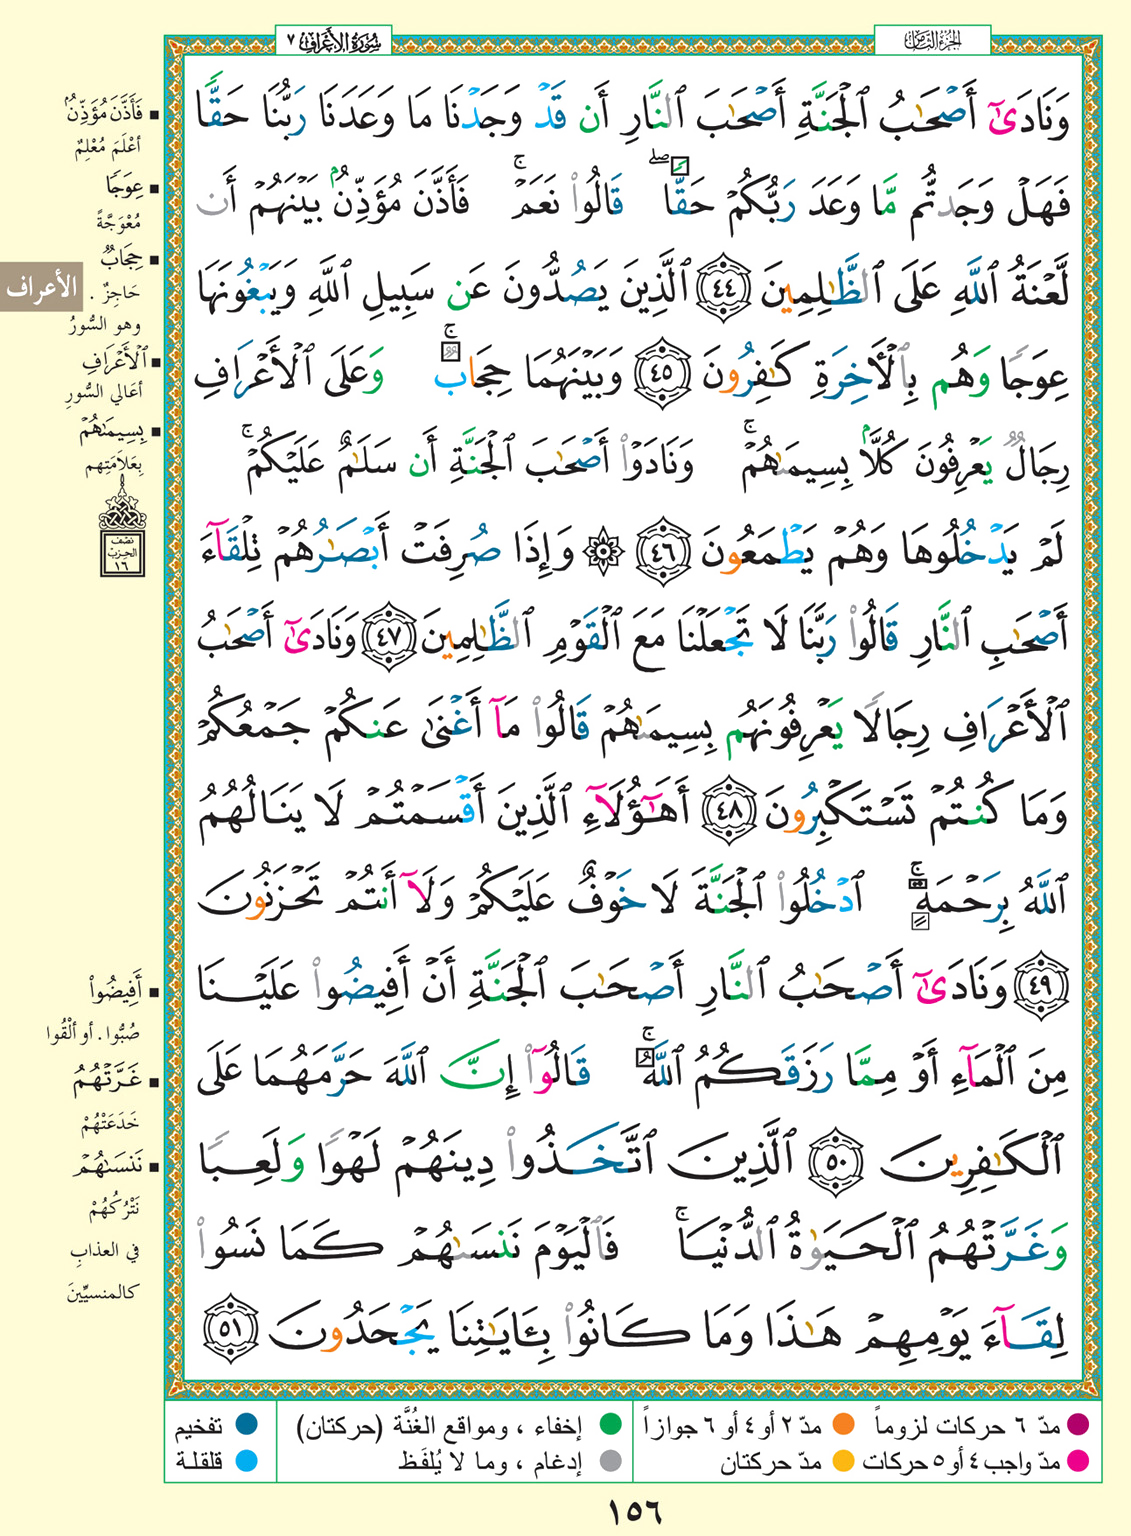 سُورَةُ الأَعْرَافِ ٧
الجُزْءُ الثَّامِنُ
وَنَادَىٰٓ أَصْحَٰبُ ٱلْجَنَّةِ أَصْحَٰبَ ٱلنَّارِ أَن قَدْ وَجَدْنَا مَا وَعَدَنَا رَبُّنَا حَقًّا
فَهَلْ وَجَدتُّم مَّا وَعَدَ رَبُّكُمْ حَقًّا ۖ قَالُوا۟ نَعَمْ ۚ فَأَذَّنَ مُؤَذِّنٌۢ بَيْنَهُمْ أَن
لَّعْنَةُ ٱللَّهِ عَلَى ٱلظَّٰلِمِينَ ٤٤ ٱلَّذِينَ يَصُدُّونَ عَن سَبِيلِ ٱللَّهِ وَيَبْغُونَهَا
عِوَجًا وَهُم بِٱلْأَخِرَةِ كَٰفِرُونَ ٤٥ وَبَيْنَهُمَا حِجَابٌ ۚ وَعَلَى ٱلْأَعْرَافِ
رِجَالٌ يَعْرِفُونَ كُلًّۢا بِسِيمَىٰهُمْ ۚ وَنَادَوْا۟ أَصْحَٰبَ ٱلْجَنَّةِ أَن سَلَٰمٌ عَلَيْكُمْ ۚ
لَمْ يَدْخُلُوهَا وَهُمْ يَطْمَعُونَ ٤٦ ۞ وَإِذَا صُرِفَتْ أَبْصَٰرُهُمْ تِلْقَآءَ
أَصْحَٰبِ ٱلنَّارِ قَالُوا۟ رَبَّنَا لَا تَجْعَلْنَا مَعَ ٱلْقَوْمِ ٱلظَّٰلِمِينَ ٤٧ وَنَادَىٰٓ أَصْحَٰبُ
ٱلْأَعْرَافِ رِجَالًا يَعْرِفُونَهُم بِسِيمَىٰهُمْ قَالُوا۟ مَآ أَغْنَىٰ عَنكُمْ جَمْعُكُمْ
وَمَا كُنتُمْ تَسْتَكْبِرُونَ ٤٨ أَهَٰٓؤُلَآءِ ٱلَّذِينَ أَقْسَمْتُمْ لَا يَنَالُهُمُ
ٱللَّهُ بِرَحْمَةٍ ۚ ٱدْخُلُوا۟ ٱلْجَنَّةَ لَا خَوْفٌ عَلَيْكُمْ وَلَآ أَنتُمْ تَحْزَنُونَ
٤٩ وَنَادَىٰٓ أَصْحَٰبُ ٱلنَّارِ أَصْحَٰبَ ٱلْجَنَّةِ أَنْ أَفِيضُوا۟ عَلَيْنَا
مِنَ ٱلْمَآءِ أَوْ مِمَّا رَزَقَكُمُ ٱللَّهُ ۚ قَالُوٓا۟ إِنَّ ٱللَّهَ حَرَّمَهُمَا عَلَى
ٱلْكَٰفِرِينَ ٥٠ ٱلَّذِينَ ٱتَّخَذُوا۟ دِينَهُمْ لَهْوًا وَلَعِبًا
وَغَرَّتْهُمُ ٱلْحَيَوٰةُ ٱلدُّنْيَا ۚ فَٱلْيَوْمَ نَنسَىٰهُمْ كَمَا نَسُوا۟
لِقَآءَ يَوْمِهِمْ هَٰذَا وَمَا كَانُوا۟ بِـَٔايَٰتِنَا يَجْحَدُونَ ٥١
فَأَذَّنَ مُؤَذِّنٌۢ
أعْلَمَ مُعْلِمٌ
عِوَجًا
مُعْوَجَّةً
حِجَابٌ
حَاجِزٌ .
وهو السُّورُ
ٱلْأَعْرَافِ
أعَالي السُّورِ
بِسِيمَىٰهُمْ
بِعَلَامَتِهم
الأعراف
نصف
الحزب
١٦
أَفِيضُوا۟
صُبُّوا . أو ألْقُوا
غَرَّتْهُمُ
خَدَعَتْهُمْ
نَنسَىٰهُمْ
نَتْرُكُهُمْ
في العذابِ
كالمنسيِّينَ
مدّ ٦ حركات لزوماً
مدّ ٢ أو ٤ أو ٦ جوازاً
إخفاء ، ومواقع الغُنَّة (حركتان)
تفخيم
مدّ واجب ٤ أو ٥ حركات
مدّ حركتان
إدغام ، وما لا يُلفَظ
قلقلة
١٥٦